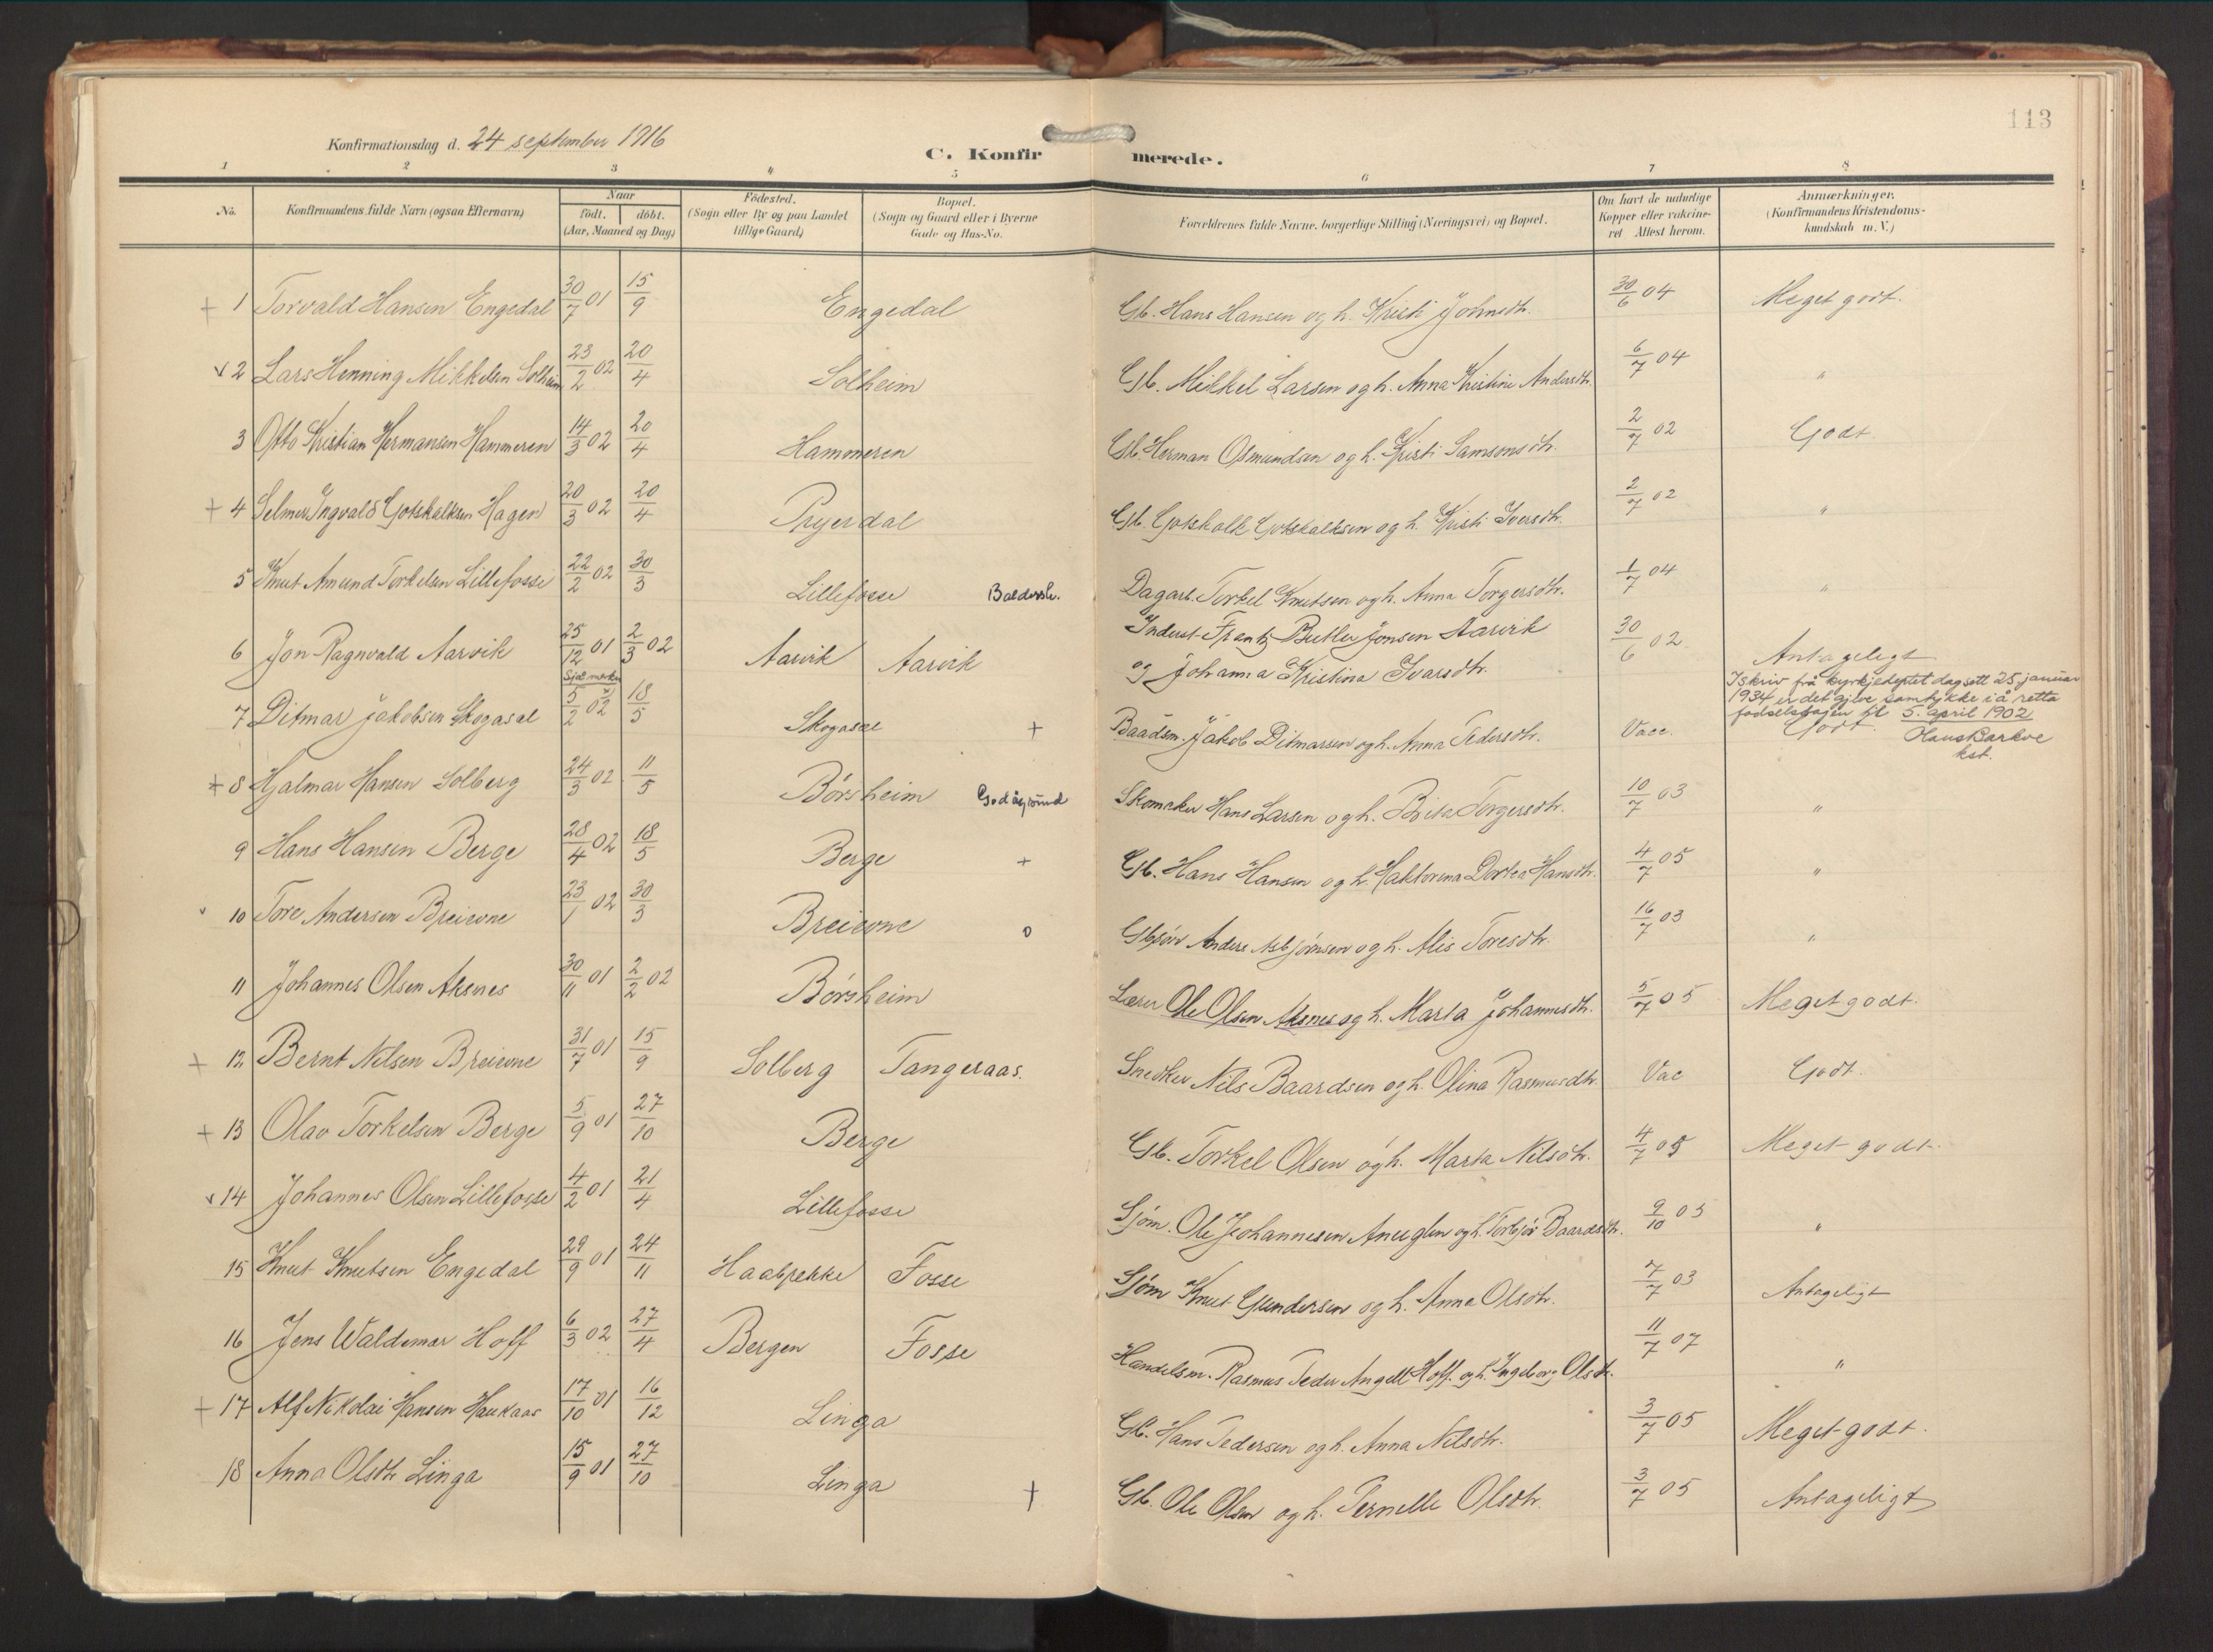 113
Konfirmationsdag d. 24 september 1916
C. Konfirmerede.
1 2 3 4 5 6 7 8
No. Konfirmandens fulde Navn (ogsaa Efternavn) Naar födt. döbt. (Aar, Maaned og Dag) Födested. (Sogn eller By og paa Landet tillige Gaard) Bopæl. (Sogn og Gaard eller i Byerne Gade og Hus-No. Forældrenes fulde Navne, borgerlige Stilling (Næringsvei) og Bopæl. Om havt de naturlige Kopper eller vakcineret Attest herom. Anmærkninger. (Konfirmandens Kristendomskundskab m. V.)
+ 1 Torvald Hansen Engedal 30/7 01 15/9 Engedal Gb. Hans Hansen og h. Kristi Johnsdtr. 30/6 04 Meget godt.
v 2 Lars Henning Mikkelsen Solheim 23/2 02 20/4 Solheim Gb. Mikkel Larsen og h. Anna Kristine Andersdtr. 6/7 04 "
3 Otto Kristian Hermansen Hammeren 14/3 02 20/4 Hammeren Gb. Herman Osmundsen og h. Kristi Samsonsdtr. 2/7 02 Godt
+ 4 Selmer Ingvald Gotskalksen Hagen 20/3 02 20/4 Gb. Gotskalk Gotskalksen og h. Kristi Iversdtr. 2/7 02 "
5 Knut Amund Torkelsen Lillefosse 22/2 02 30/3 Lillefosse Dagarb. Torkel Knutsen og h. Anna Torgersdtr. 1/7 04 "
6 Jon Ragnvald Aarvik 25/12 01 2/3 02 Aarvik Aarvik Inderst Frantz Butler Jonsen Aarvik og Johanna Kristina Ivarsdtr. 30/6 02 Antageligt
Sjå merkn
7 Ditmar Jakobsen Skogasæl 5/2 02 18/5 Skogasæl + Baadsm. Jakob Ditmarsen og h. Anna Pedersdtr. Vacc. Godt
I skriv frå kyrkjedeptet dagsett 25 januar
1934 er det gjeve samtykke i å retta
fødselsdagen til 5. april 1902
kst.
+ 8 Hjalmar Hansen Solberg 24/3 02 11/5 Börsheim Skomaker Hans Larsen og h. Brita Torgersdtr. 10/7 03 "
9 Hans Hansen Berge 28/4 02 18/5 Berge + Gb. Hans Hansen og h. Haktorina Dortea Hansdtr. 4/7 05 "
v 10 Tore Andersen Breievne 23/1 02 30/3 Breievne o Anders Asbjörnsen og h. Alis Toresdtr. 16/7 03 "
11 Johannes Olsen Aksnes 30/11 01 2/2 02 Börsheim Lærer Ole Olsen Aksnes og h. Marta Johannesdtr. 5/7 05 Meget godt.
+ 12 Bernt Nilsen Breievne 31/7 01 15/9 Solberg Tangeraas. Snedker Nils Baardsen og h. Olina Rasmusdtr. Vac Godt.
+ 13 Olav Torkelsen Berge 5/9 01 27/10 Berge Gb. Torkel Olsen og h. Marta Nilsdtr. 4/7 05 Meget godt
v 14 Johannes Olsen Lillefosse 4/2 01 21/4 Lillefosse Sjöm. Ole Johannesen Aneglen og h. Torbjör Baardsdtr. 9/10 03 "
15 Knut Knutsen Engedal 29/9 01 24/11 Fosse Sjöm Knut Gundersen og h. Anna Olsdtr. 7/7 03 Antageligt
16 Jens Waldemar Hoff 6/3 02 27/4 Bergen Fosse Handelsm. Rasmus Peder Angell Hoff. og h. Ingeborg Olsdtr. 11/7 07 "
+ 17 Alf Nikolai Hansen Haukaas 17/10 01 16/12 Linga Gb. Hans Pedersen og h. Anna Nilsdtr. 3/7 05 Meget godt.
18 Anna Olsdtr Linga 15/9 01 27/10 Linga + Gb. Ole Olsen og h. Pernelle Olsdtr. 3/7 05 Antageligt